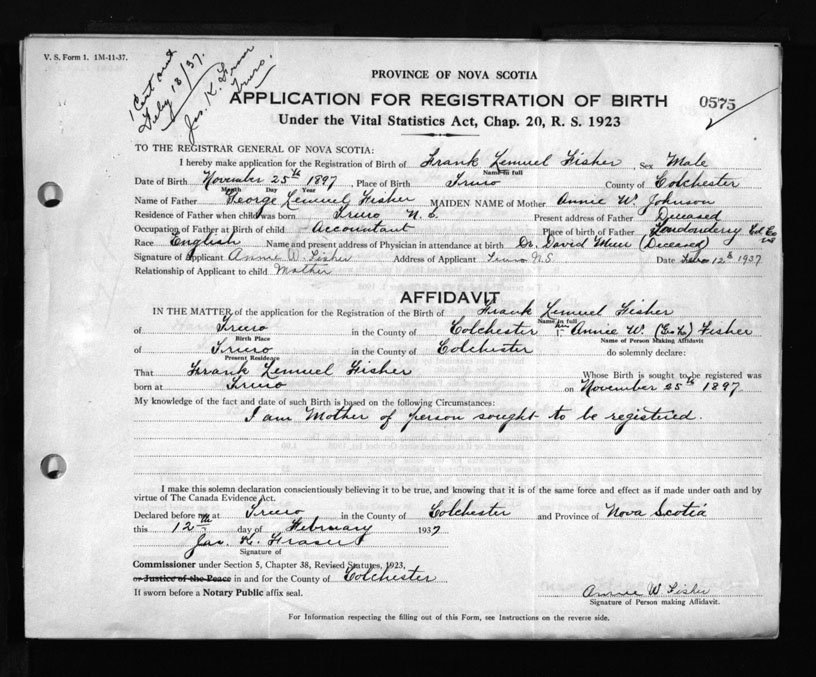 V. S. Form 1. 1M-11-37.
1 Cert and
Feby 13/37.
Jas. K. Fraser
Truro.
PROVINCE OF NOVA SCOTIA
APPLICATION FOR REGISTRATION OF BIRTH
0575
Under the Vital Statistics Act, Chap. 20, R. S. 1923
TO THE REGISTRAR GENERAL OF NOVA SCOTIA:
I hereby make application for the Registration of Birth of Frank Lemuel Fisher, Sex Male
Name in full
Date of Birth November 25th 1897, Place of Birth Truro County of Colchester
Month Day Year
Name of Father George Lemuel Fisher MAIDEN NAME of Mother Annie W. Johnson
Residence of Father when child was born Truro N. S. Present address of Father Deceased
Occupation of Father at Birth of child Accountant Place of birth of Father Londonderry Col Co NS
Race English Name and present address of Physician in attendance at birth Dr. David Muir (Deceased)
Signature of Applicant Annie W. Fisher Address of Applicant Truro N.S. Date Feb 12th 1937
Relationship of Applicant to child Mother
AFFIDAVIT
IN THE MATTER of the application for the Registration of Birth of Frank Lemuel Fisher
Name in full
of Truro in the County of Colchester I, Annie W. Fisher
Birth Place Name of Person Making Affidavit
of Truro in the County of Colchester do solemnly declare:
Present Residence
That Frank Lemuel Fisher Whose Birth is sought to be registered was
born at Truro on November 25th 1897
My knowledge of the fact and date of such Birth is based on the following Circumstances:
I am Mother of person sought to be registered.
I make this solemn declaration conscientiously believing it to be true, and knowing that it is of the same force and effect as if made under oath and by
virtue of The Canada Evidence Act.
Declared before me at Truro in the County of Colchester and Province of Nova Scotia
this 12th day of February 1937
Jas. K. Fraser
Signature of
Commissioner under Section 5, Chapter 38, Revised Statutes, 1923,
or Justice of the Peace in and for the County of Colchester
If sworn before a Notary Public affix seal.
Annie W. Fisher
Signature of Person making Affidavit.
For Information respecting the filling out of this Form, see Instructions on the reverse side.